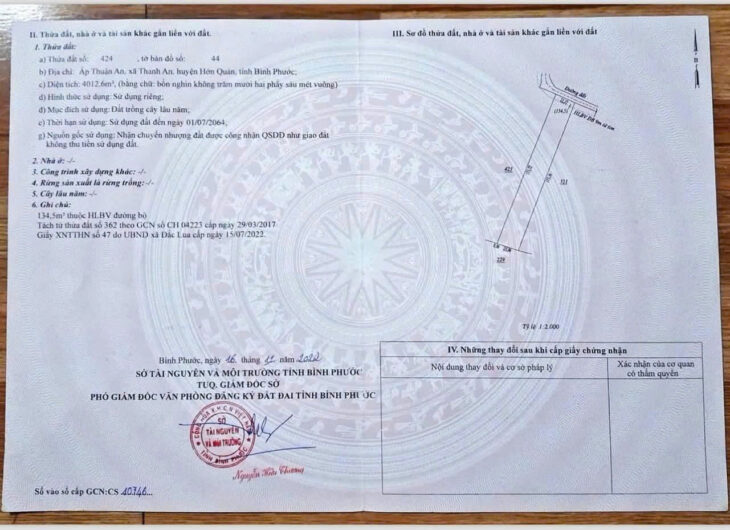 II. Thửa đất, nhà ở và tài sản khác gắn liền với đất.
1. Thửa đất:
a) Thửa đất số: 424 , tờ bản đồ số: 44
b) Địa chỉ: Ấp Thuận An, xã Thanh An, huyện Hớn Quản, tỉnh Bình Phước.
c) Diện tích: 4012.6m², (bằng chữ: bốn nghìn không trăm mười hai phẩy sáu mét vuông)
d) Hình thức sử dụng: Sử dụng riêng;
đ) Mục đích sử dụng: Đất trồng cây lâu năm.
e) Thời hạn sử dụng: Sử dụng đất đến ngày 01/07/2064;
g) Nguồn gốc sử dụng: Nhận chuyển nhượng đất được công nhận QSDĐ như giao đất
không thu tiền sử dụng đất.
2. Nhà ở: -/-
3. Công trình xây dựng khác: -/-
4. Rừng sản xuất là rừng trồng: -/-
5. Cây lâu năm: -/-
6. Ghi chú:
134,5m² thuộc HLBV đường bộ
Tách từ thửa đất số 362 theo GCN số CH 04223 cấp ngày 29/03/2017
Giấy XNTTHN số 47 do UBND xã Đắc Lua cấp ngày 15/07/2022.
Bình Phước, ngày 16 tháng 12 năm 2022
SỞ TÀI NGUYÊN VÀ MÔI TRƯỜNG TỈNH BÌNH PHƯỚC
TUQ. GIÁM ĐỐC SỞ
PHÓ GIÁM ĐỐC VĂN PHÒNG ĐĂNG KÝ ĐẤT ĐAI TỈNH BÌNH PHƯỚC
SỞ
TÀI NGUYÊN
VÀ MÔI TRƯỜNG
TỈNH BÌNH PHƯỚC
Số vào sổ cấp GCN:CS 10746...
III. Sơ đồ thửa đất, nhà ở và tài sản khác gắn liền với đất
Đường đất
(134.5)
421
229
Tỷ lệ 1:2.000
IV. Những thay đổi sau khi cấp giấy chứng nhận
Nội dung thay đổi và cơ sở pháp lý
Xác nhận của cơ quan
có thẩm quyền